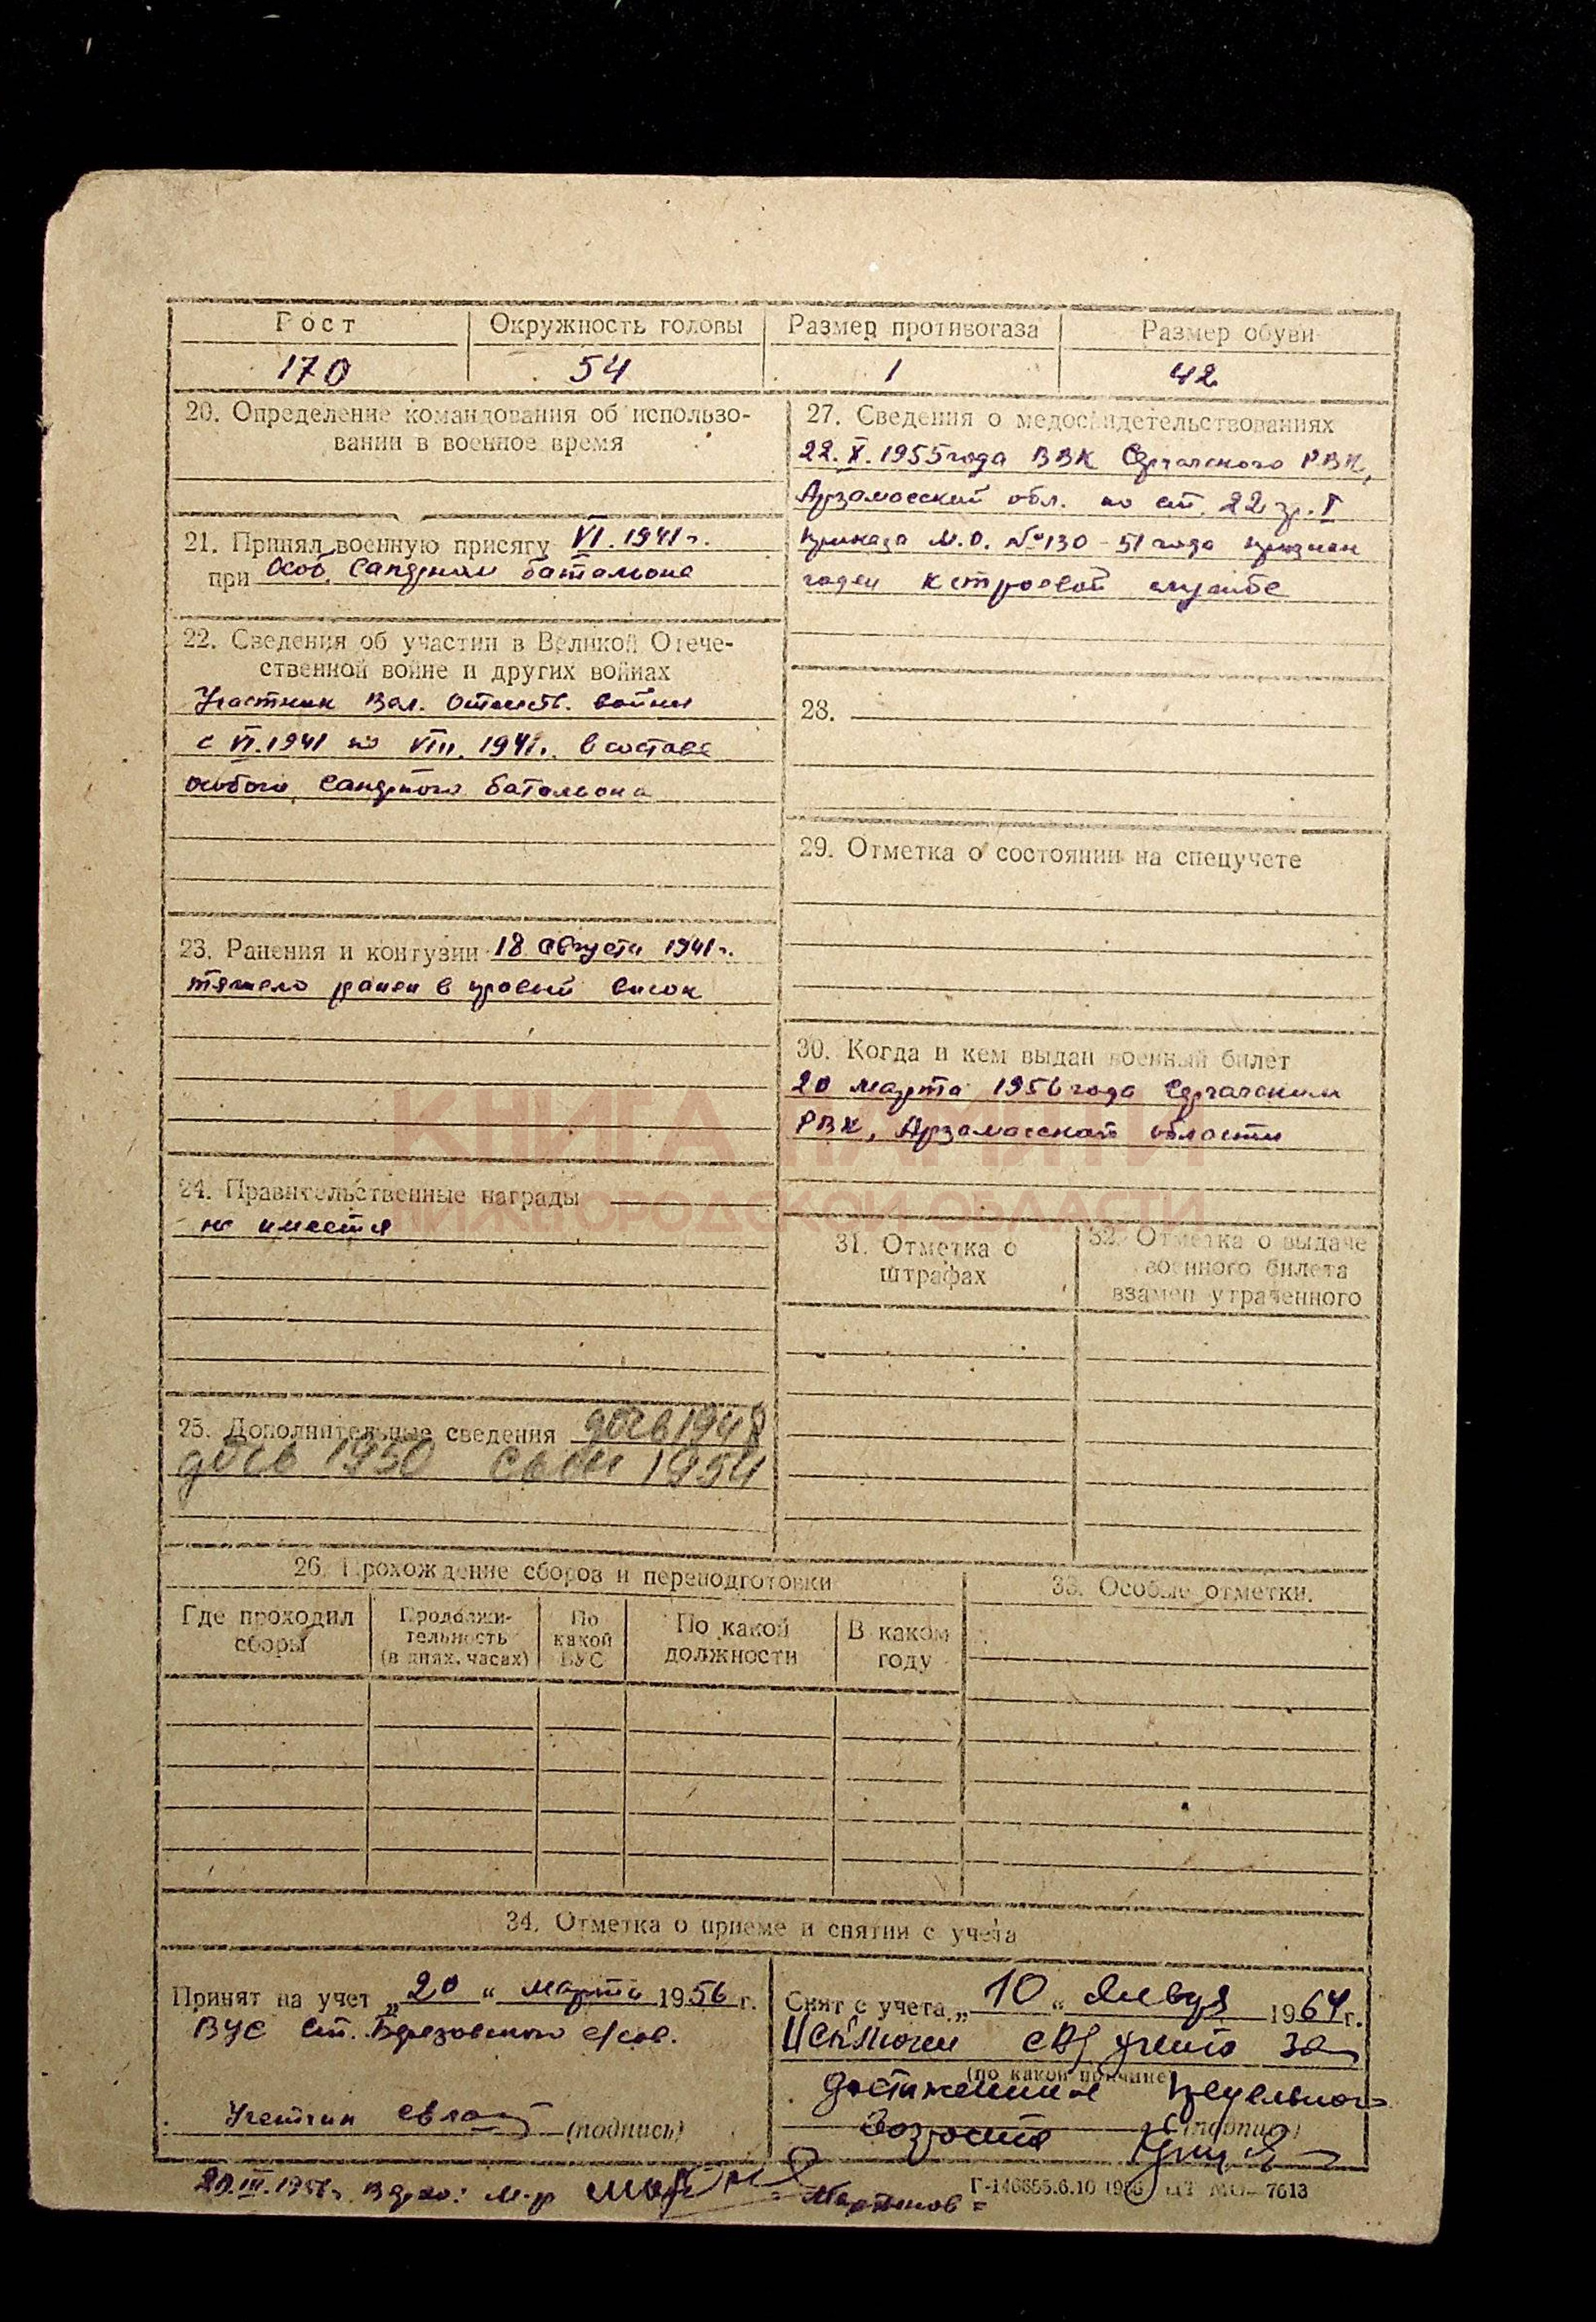 Рост
Окружность головы
Размер противогаза
Размер обуви
170
54
1
42
20. Определение командования об использо-
вании в военное время
21. Принял военную присягу VI. 1941 г.
при Особ. Саперном батальоне
22. Сведения об участии в Великой Отече-
ственной войне и других войнах
Участник Вел. Отечеств. войны
с VI. 1941 по VIII. 1941 г. в составе
особого Саперного батальона
23. Ранения и контузии 18 августа 1941 г.
тяжело ранен в правый висок
24. Правительственные награды
не имеется
25. Дополнительные сведения дочь 1948
дочь 1950 сын 1954
27. Сведения о медосвидетельствованиях
22. X. 1955 года ВВК Сергачского РВК,
Арзамасской обл. по ст. 22 гр. I
приказа М.О. № 130 - 51 года признан
годен к строевой службе
28.
29. Отметка о состоянии на спецучете
30. Когда и кем выдан военный билет
20 марта 1956 года Сергачским
РВК, Арзамасской области
КНИГА ПАМЯТИ
НИЖЕГОРОДСКОЙ ОБЛАСТИ
31. Отметка о
штрафах
32. Отметка о выдаче
военного билета
взамен утраченного
26. Прохождение сборов и переподготовки
Где проходил
сборы
Продолжи-
тельность
(в днях, часах)
По
какой
ВУС
По какой
должности
В каком
году
33. Особые отметки.
34. Отметка о приеме и снятии с учета
Принят на учет „20“ марта 1956 г.
ВУС ст. Березовского с/сов.
(подпись)
Снят с учета „10“ Января 1964 г.
Исключен с В/учета за
(по какой причине)
достижением предельного
возраста (подпись)
20. III. 1956 г. м-р
Мартынов =
7613